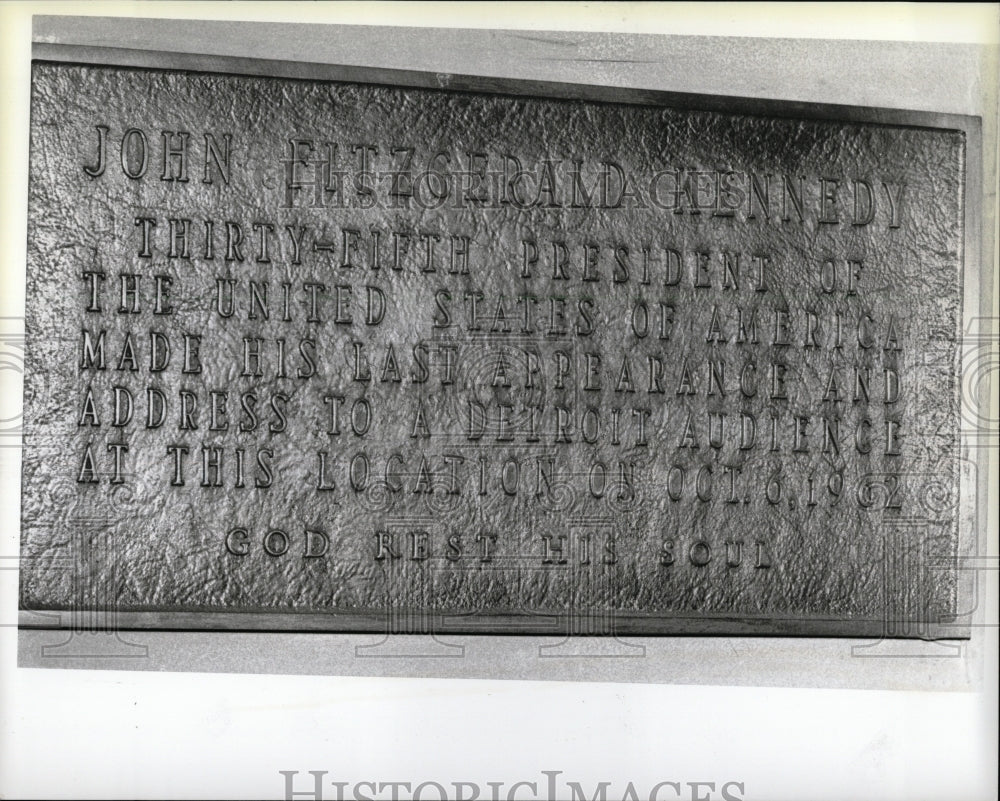 JOHN FITZGERALD KENNEDY
THIRTY-FIFTH PRESIDENT OF
THE UNITED STATES OF AMERICA
MADE HIS LAST APPEARANCE AND
ADDRESS TO A DETROIT AUDIENCE
AT THIS LOCATION ON OCT. 6, 1962
GOD REST HIS SOUL
HISTORICIMAGES